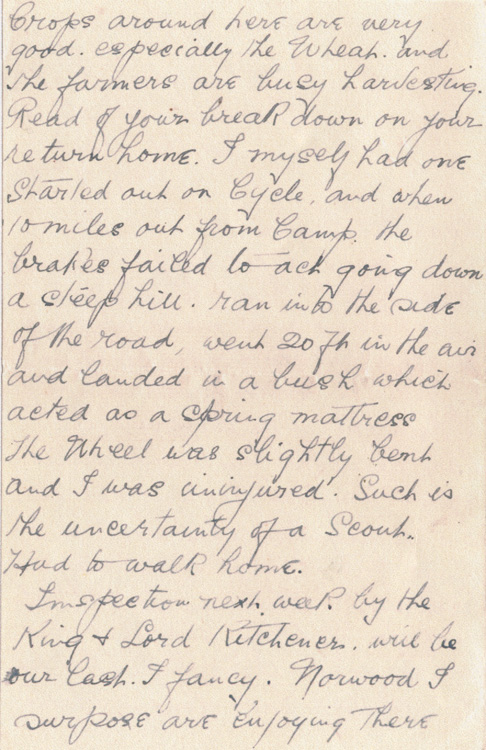 Crops around here are very
good. especially the Wheat. and
the farmers are busy harvesting.
Read of your break down on your
return home. I myself had one
Started out on Cycle, and when
10 miles out from Camp. the
brakes failed to act going down
a steep hill. ran into the side
of the road, went 20 ft in the air
and landed in a bush which
acted as a spring mattress
The Wheel was slightly bent
and I was uninjured. Such is
the uncertainty of a Scout.
Had to walk home.
Inspection next week by the
King & Lord Kitchener. will be
our last. I fancy. Norwood I
surpose are enjoying there